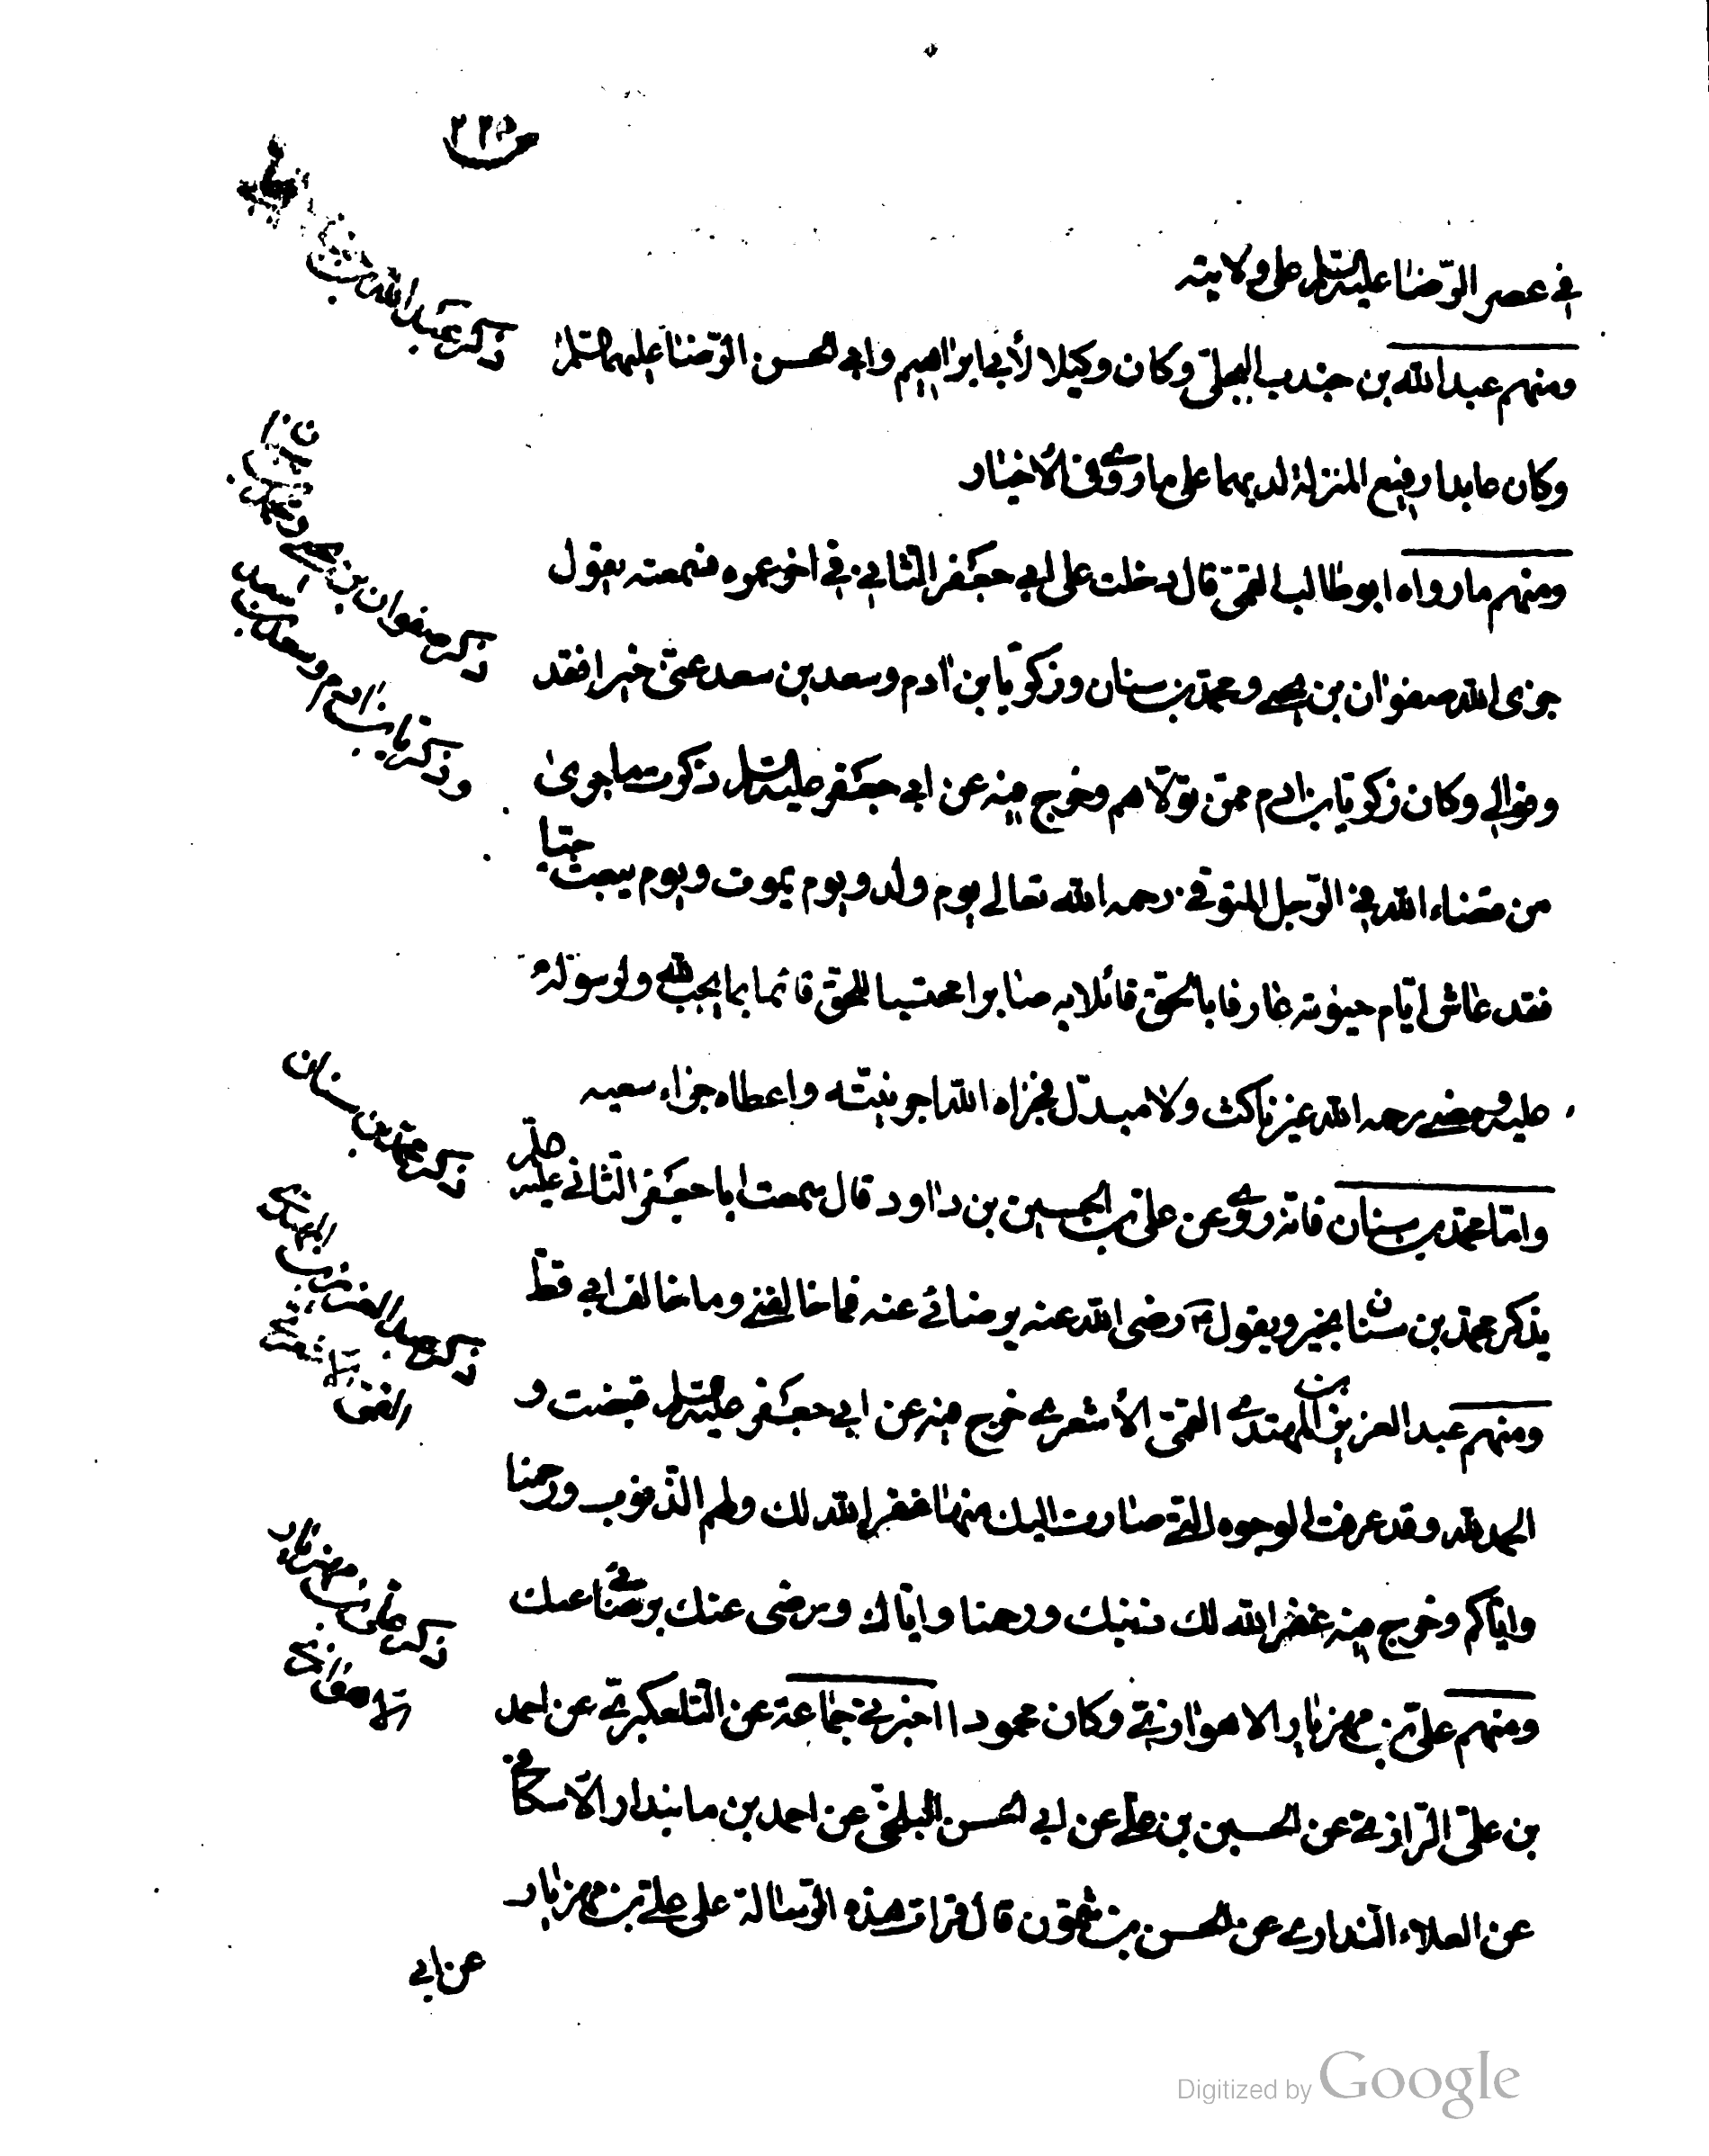 ٢٢٥
في عصر الرّضا عليه السّلم على ولايته
ومنهم عبد الله بن جندب البجلىّ وكان وكيلا لأبي ابراهيم وابي الحسن الرّضا عليهما السّلم
ذكر عبد الله بن
وكان عابدا رفيع المنزلة لديهما على ما روى في الأخبار
ومنهم ما رواه ابو طالب القمىّ قال دخلت على ابي جعفر الثاني في اخر عمره فسمعته يقول
ذكر صفوان بن يحيى
جزى الله صفوان بن يحيى ومحمّد بن سنان وزكريّا بن ادم وسعد بن سعد عنّى خيرا فقد
وذكريا بن ادم وسعد بن سعد
وفوا لي وكان زكريّا بن ادم ممّن تولّاهم وخرج فيه عن ابي جعفر عليه السّلم ذكرت ما جرى
من قضاء الله في الرّجل المتوفّى رحمه الله تعالى يوم ولد ويوم يموت ويوم يبعث حيّا
فقد عاش ايّام حيوته عارفا بالحقّ قائلا به صابرا محتسبا للحقّ قائما بما يجب لله ولرسوله
عليه ومضى رحمه الله غير ناكث ولا مبدّل فجزاه الله اجر نيّته واعطاه جزاء سعيه
ذكر محمّد بن سنان
وامّا محمّد بن سنان فانّه روى عن علىّ بن الحسين بن داود قال سمعت ابا جعفر الثّاني عليه السلم
يذكر محمّد بن سنان بخير ويقول رضى الله عنه برضائي عنه فما خالفنى وما خالف ابي قطّ
ذكر عبد العزيز بن المهتدى
القمّى الأشعرى
ومنهم عبد العزيز بن المهتدى القمىّ الأشعرى خرج فيه عن ابي جعفر عليه السّلم قبضت و
الحمد لله وقد عرفت الوجوه الّتى صارت اليك منها غفر الله لك ولهم الذّنوب ورحمنا
وايّاكم وخرج فيه غفر الله لك ذنبك ورحمنا وايّاك ورضى عنك برضائي عنك
ذكر علىّ بن مهزيار
الاهوازى
ومنهم علىّ بن مهزيار الاهوازىّ وكان محمودا اخبرنى جماعة عن التّلعكبرىّ عن احمد
بن علىّ الرّازىّ عن الحسين بن علىّ عن ابي الحسن البلخىّ عن احمد بن مابندار الاسكافى
عن العلاء النّدارى عن الحسن بن شمّون قال قرات هذه الرّسالة على علىّ بن مهزيار
عن ابي
Digitized by Google